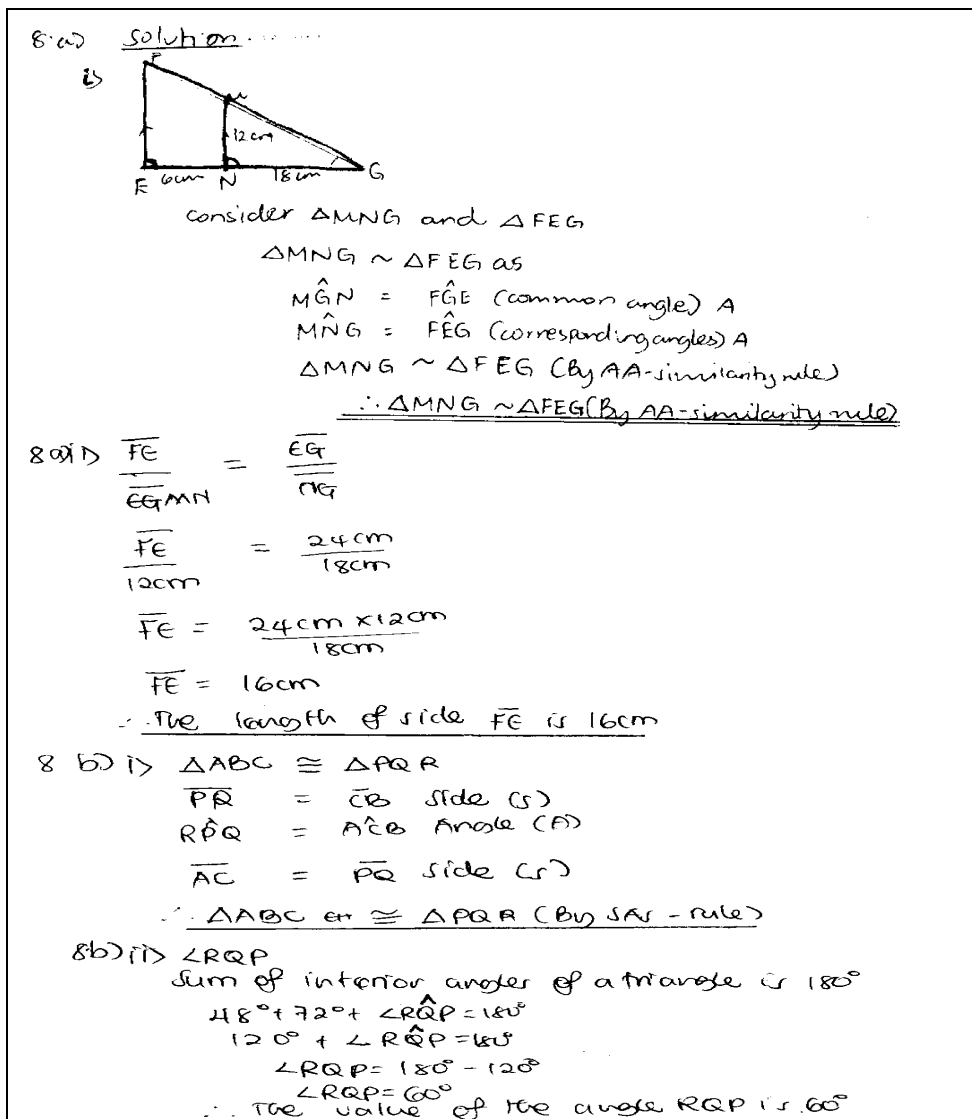 8.a) solution
i>
F
M
12cm
E 6cm N 18cm G
consider △MNG and △FEG
△MNG ~ △FEG as
MĜN = FĜE (common angle) A
MN̂G = FÊG (corresponding angles) A
△MNG ~ △FEG (By AA-similarity rule)
∴ △MNG ~ △FEG (By AA-similarity rule)
8 a)ii> F̅E̅ / E̅G̅ MN = E̅G̅ / N̅G̅
F̅E̅ / 12cm = 24cm / 18cm
F̅E̅ = 24cm × 12cm / 18cm
F̅E̅ = 16cm
∴ The length of side F̅E̅ is 16cm
8 b) i> △ABC ≅ △PQR
P̅R̅ = C̅B̅ side (s)
RP̂Q = AĈB Angle (A)
A̅C̅ = P̅Q̅ side (s)
∴ △ABC ≅ △PQR (By SAS - rule)
8b) ii> ∠RQP
Sum of interior angles of a triangle is 180°
48° + 72° + ∠RQ̂P = 180°
120° + ∠RQ̂P = 180°
∠RQP = 180° - 120°
∠RQP = 60°
∴ The value of the angle RQP is 60°